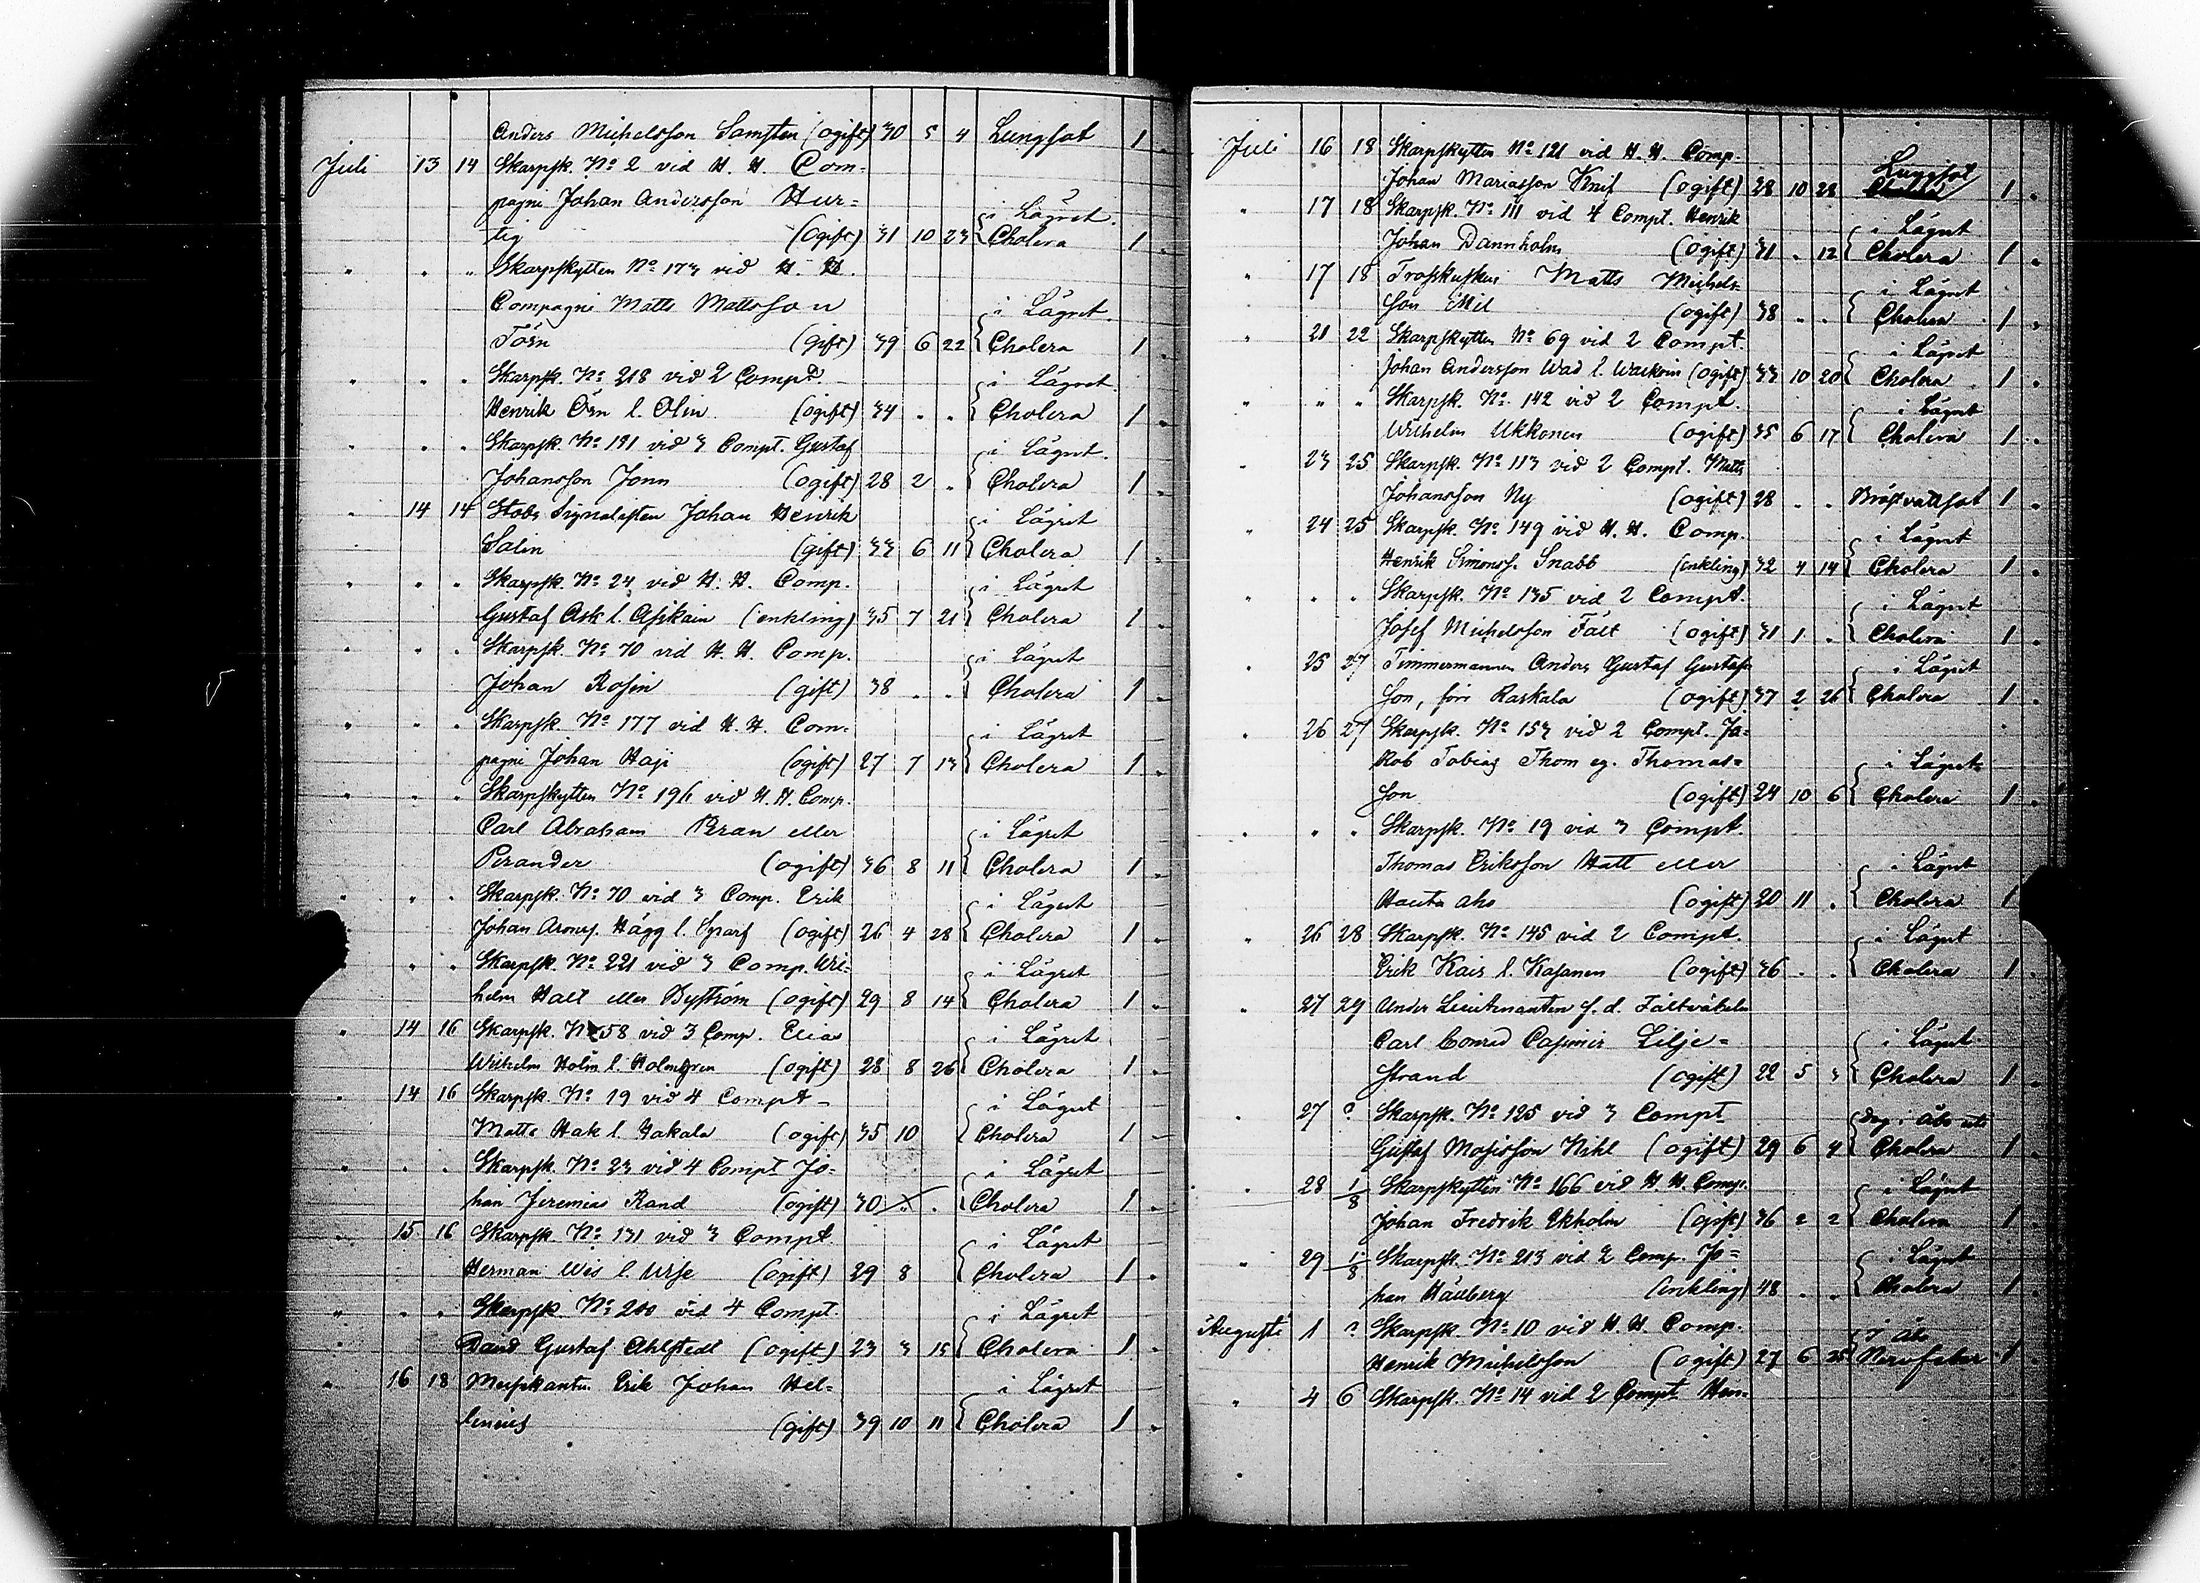 Anders Michelsson Samsten (ogift) 30 5 4 Lungsot 1 .
Juli 13 14 Skarpsk. No 2 vid H. H. Com-
pagni Johan Andersson Hur= i Lägret
tig (ogift) 31 10 23 Cholera 1 .
" " " Skarpskytten No 173 vid H. H.
Compagni Matts Mattsson i Lägret
Törn (gift) 39 6 22 Cholera 1 .
" " " Skarpsk. No 218 vid 2 Compt. i Lägret
Henrik Örn l. Olin (ogift) 34 . . Cholera 1 .
" " " Skarpsk. No 191 vid 3 Compt. Gustaf i Lägret
Johansson Jonn (ogift) 28 2 . Cholera 1 .
" 14 14 Stabs Signalisten Johan Henrik i Lägret
Salin (gift) 33 6 11 Cholera 1 .
" " " Skarpsk. No 24 vid H. H. Comp. i Lägret
Gustaf Ask l. Asikain (enkling) 35 7 21 Cholera 1 .
" " " Skarpsk. No 70 vid H. H. Comp. i Lägret
Johan Rosin (gift) 38 . . Cholera 1 .
" " " Skarpsk. No 177 vid H. H. Com- i Lägret
pagni Johan Haji (ogift) 27 7 13 Cholera 1 .
" " " Skarpskytten No 196 vid H. H. Comp.
Carl Abraham Peran eller i Lägret
Perander (ogift) 36 8 11 Cholera 1 .
" " " Skarpsk. No 70 vid 3 Comp. Erik i Lägret
Johan Aronss. Hägg l. Sparf (ogift) 26 4 28 Cholera 1 .
" " " Skarpsk. No 221 vid 3 Comp. Wil- i Lägret
helm Halt eller Byström (ogift) 29 8 14 Cholera 1 .
" 14 16 Skarpsk. No 58 vid 3 Comp. Elias i Lägret
Wilhelm Holm l. Holmgren (ogift) 28 8 26 Cholera 1 .
" 14 16 Skarpsk. No 19 vid 4 Compt i Lägret
Matts Hak l. Hakala (ogift) 35 10 Cholera 1
" " " Skarpsk. No 23 vid 4 Compt Jo- i Lägret
han Jeremias Rand (ogift) 30 . . Cholera 1 .
" 15 16 Skarpsk. No 131 vid 3 Compt i Lägret
Herman Wis l. Urse (ogift) 29 8 Cholera 1 .
" " " Skarpsk. No 200 vid 4 Compt. i Lägret
David Gustaf Ahlstedt (ogift) 23 3 15 Cholera 1 .
" 16 18 Musikanten Erik Johan Hel= i Lägret
lenius (gift) 39 10 11 Cholera 1 .
Juli 16 18 Skarpskytten No 121 vid H. H. Comp. Lungsot
Johan Mariasson Knif (ogift) 28 10 28 Cholera 1 .
" 17 18 Skarpsk. No 111 vid 4 Compt. Henrik i Lägret
Johan Dannholm (ogift) 31 . 12 Cholera 1 .
" 17 18 Trosskusken Matts Michels- i Lägret
son Mil (ogift) 38 . . Cholera 1 .
" 21 22 Skarpskytten No 69 vid 2 Compt. i Lägret
Johan Andersson Wad l. (ogift) 33 10 20 Cholera 1 .
" " " Skarpsk. No 142 vid 2 Compt. i Lägret
Wilhelm Ukkonen (ogift) 35 6 17 Cholera 1 .
" 23 25 Skarpsk. No 113 vid 2 Compt. Matts
Johansson Ny (ogift) 28 . . Bröstvattsot 1 .
" 24 25 Skarpsk. No 149 vid H. H. Comp. i Lägret
Henrik Simonss. Snabb (enkling) 32 4 14 Cholera 1 .
" " " Skarpsk. No 135 vid 2 Compt. i Lägret
Josef Michelsson Fält (ogift) 31 1 . Cholera 1 .
" 25 27 Timmermannen Anders Gustaf Gustafs- i Lägret
son, förr Raskala (ogift) 37 2 26 Cholera 1 .
" 26 27 Skarpsk. No 153 vid 2 Compt. Ja=
kob Tobias Thom eg. Thomas= i Lägret
son (ogift) 24 10 6 Cholera 1 .
" " " Skarpsk. No 19 vid 3 Compt.
Thomas Eriksson Hatt eller i Lägret
Hauta aho (ogift) 20 11 . Cholera 1
" 26 28 Skarpsk. No 145 vid 2 Compt. i Lägret
Erik Kais l. Kasanen (ogift) 36 . . Cholera 1 .
" 27 29 Under Lieutenanten f. d. Fältväbeln
Carl Conrad Casimir Lilje= i Lägret
strand (ogift) 22 5 3 Cholera 1 .
" 27 ? Skarpsk. No 125 vid 3 Compt i Åbo
Gustaf Mosisson Kihl (ogift) 29 6 4 Cholera 1 .
" 28 1/8 Skarpskytten No 166 vid H. H. Comp. i Lägret
Johan Fredrik Ekholm (ogift) 36 2 2 Cholera 1 .
" 29 1/8 Skarpsk. No 213 vid 2 Comp. Jo= i Lägret
han Hauberg (enkling) 48 . . Cholera 1 .
Augusti 1 ? Skarpsk. No 10 vid H. H. Comp. i Åbo
Henrik Michelsson (ogift) 27 6 25 Nervfeber 1 .
" 4 6 Skarpsk. No 14 vid 2 Compt. Hen-